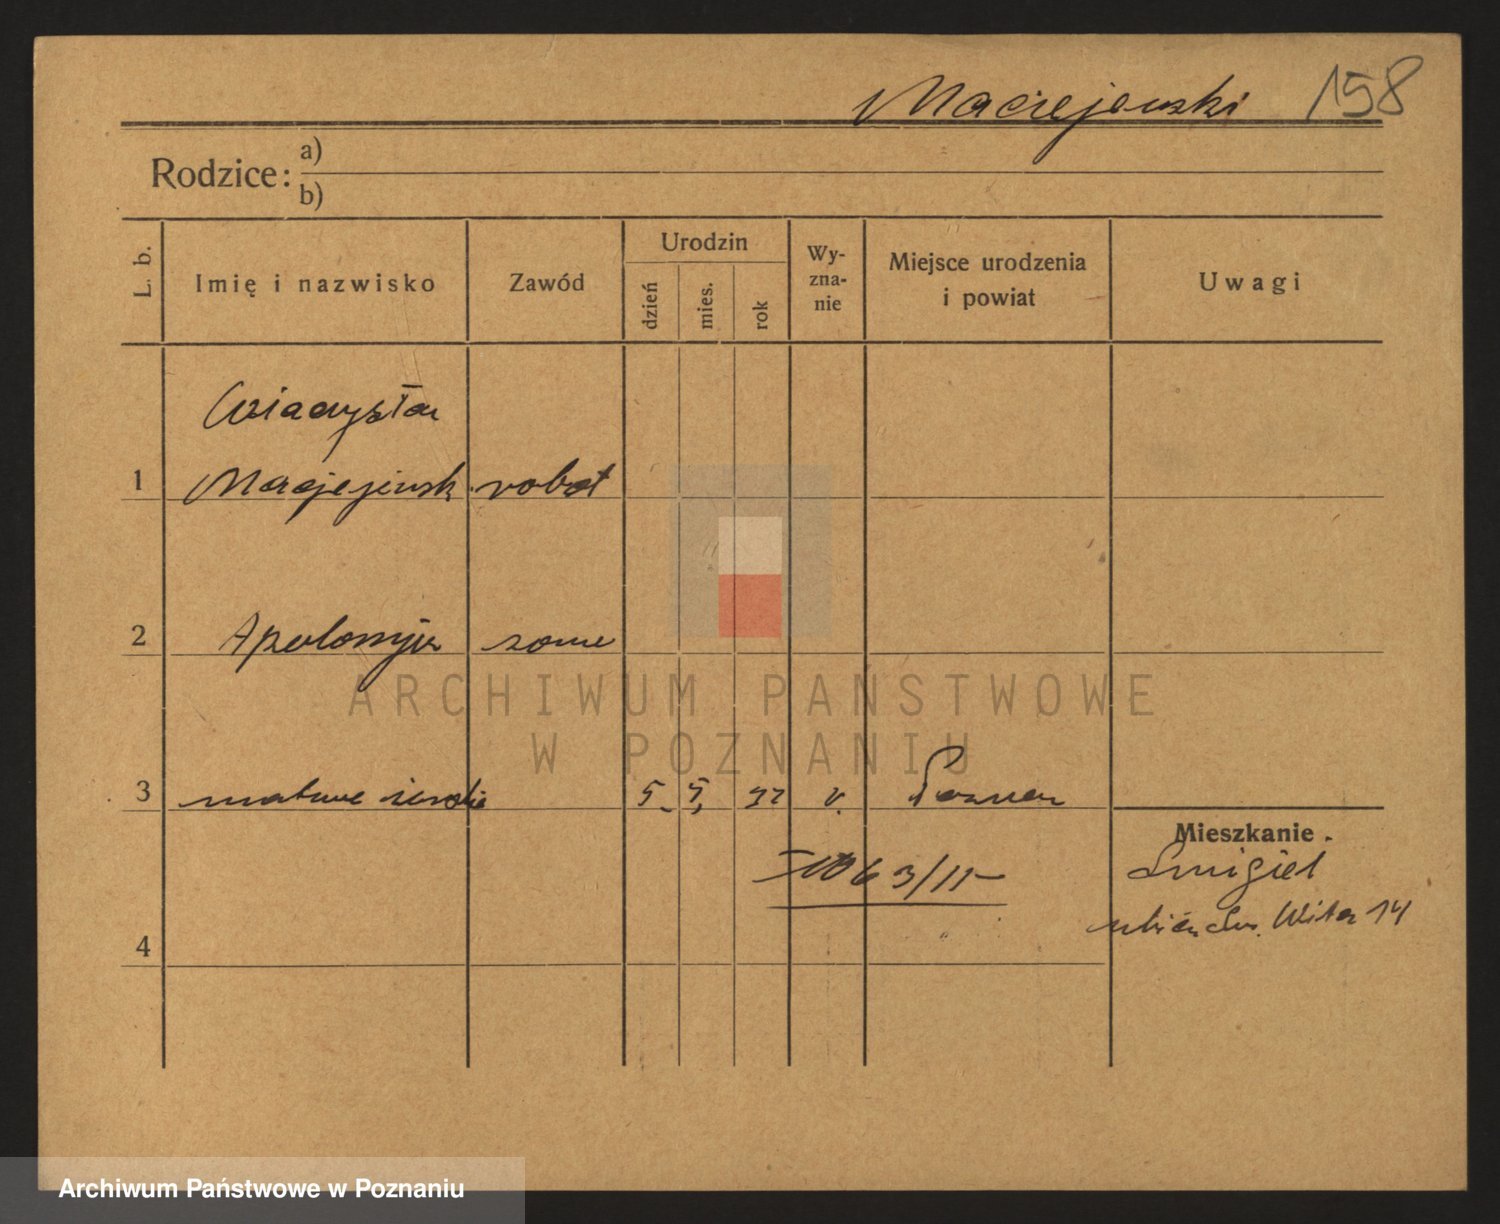 Maciejewski 158
Rodzice: a)
b)
L. b.
Imię i nazwisko
Zawód
Urodzin
dzień
mies.
rok
Wy-
zna-
nie
Miejsce urodzenia
i powiat
Uwagi
Władysław
1 Maciejewsk robot
2 Apolonija
3 martwe 5. 5, 22 Poznań
Mieszkanie.
63/11 Śmigiel
Św. Wita 14
4
ARCHIWUM PAŃSTWOWE
W POZNANIU
Archiwum Państwowe w Poznaniu